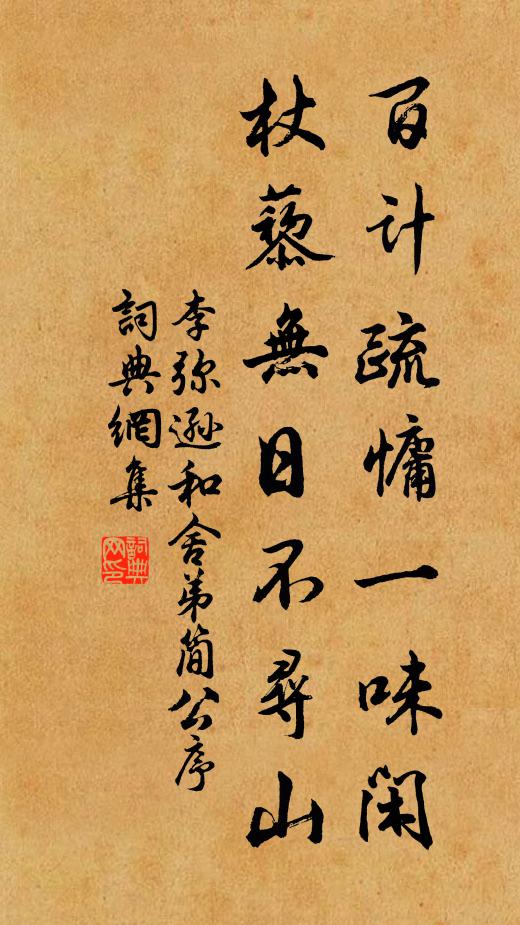 百计疏慵一味闲
杖藜無日不尋山
李弥遜和舍弟簡公序
詞典網集
詞典网印